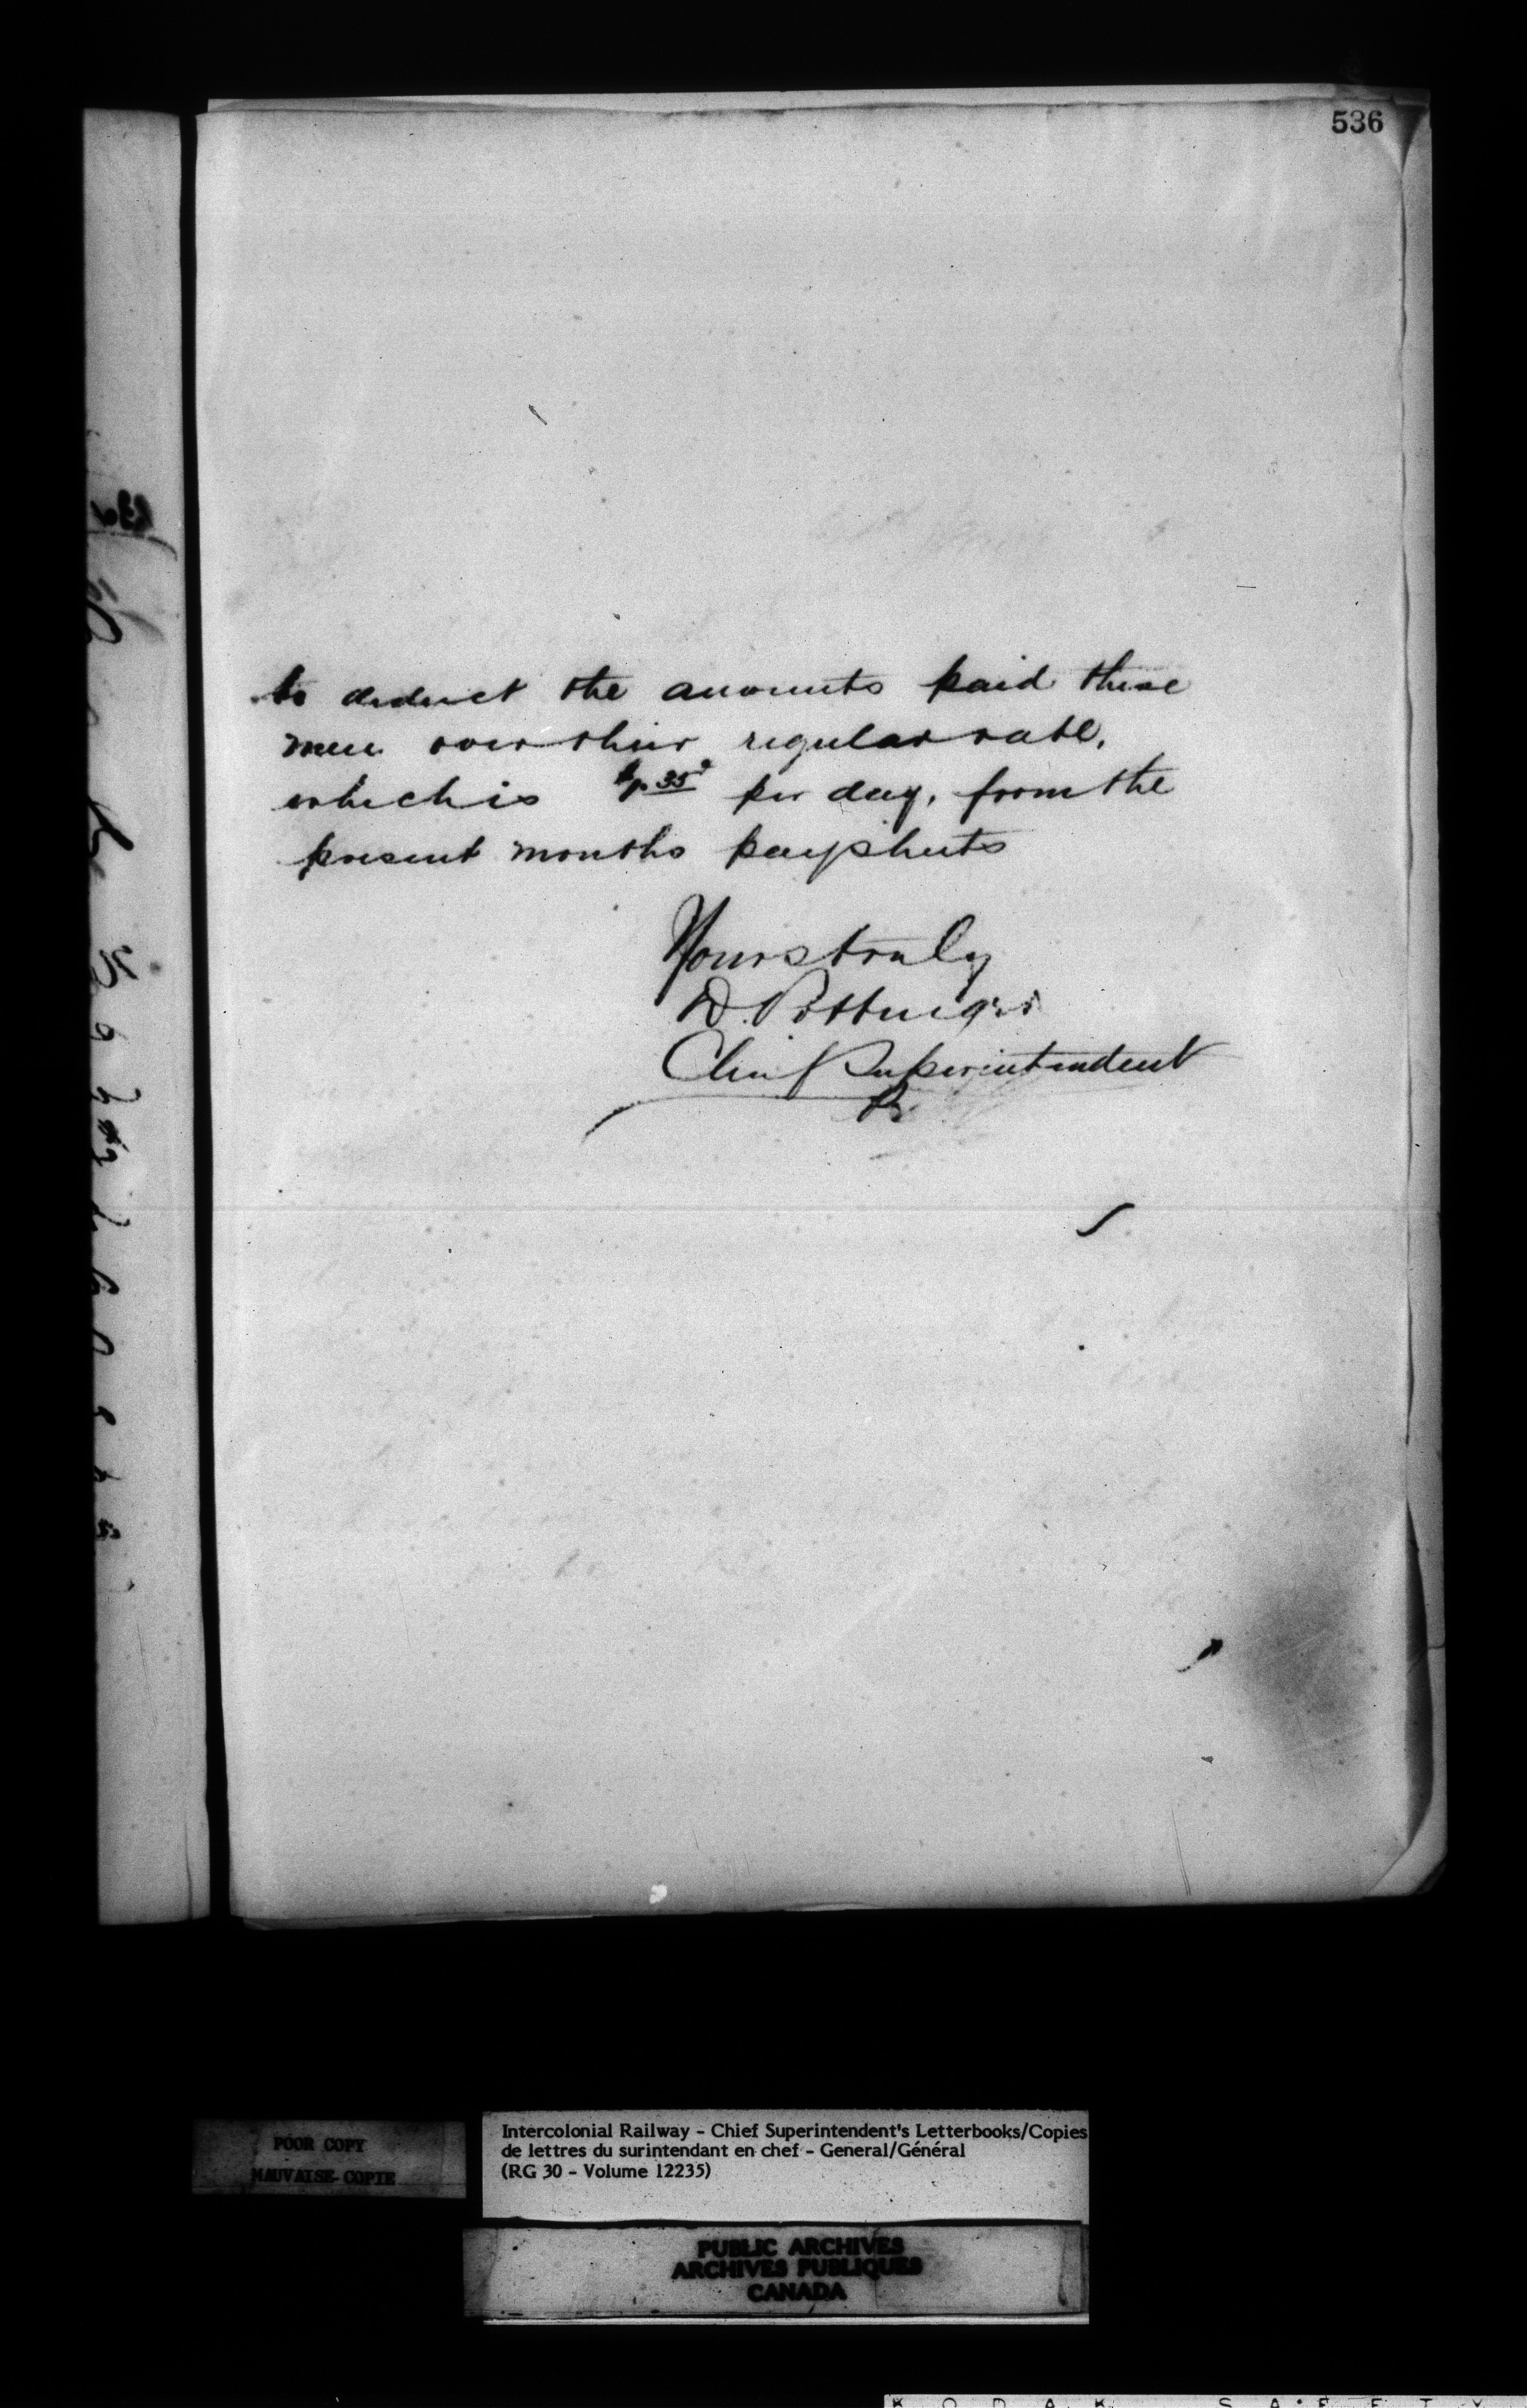 536
to deduct the amounts paid these
men over their regular rate,
which is per day, from the
present months paysheets
Yours truly
D. Pottinger
Chief Superintendent
POOR COPY
MAUVAISE COPIE
Intercolonial Railway - Chief Superintendent's Letterbooks/Copies
de lettres du surintendant en chef - General/Général
(RG 30 - Volume 12235)
PUBLIC ARCHIVES
ARCHIVES PUBLIQUES
CANADA
KODAK SAFETY